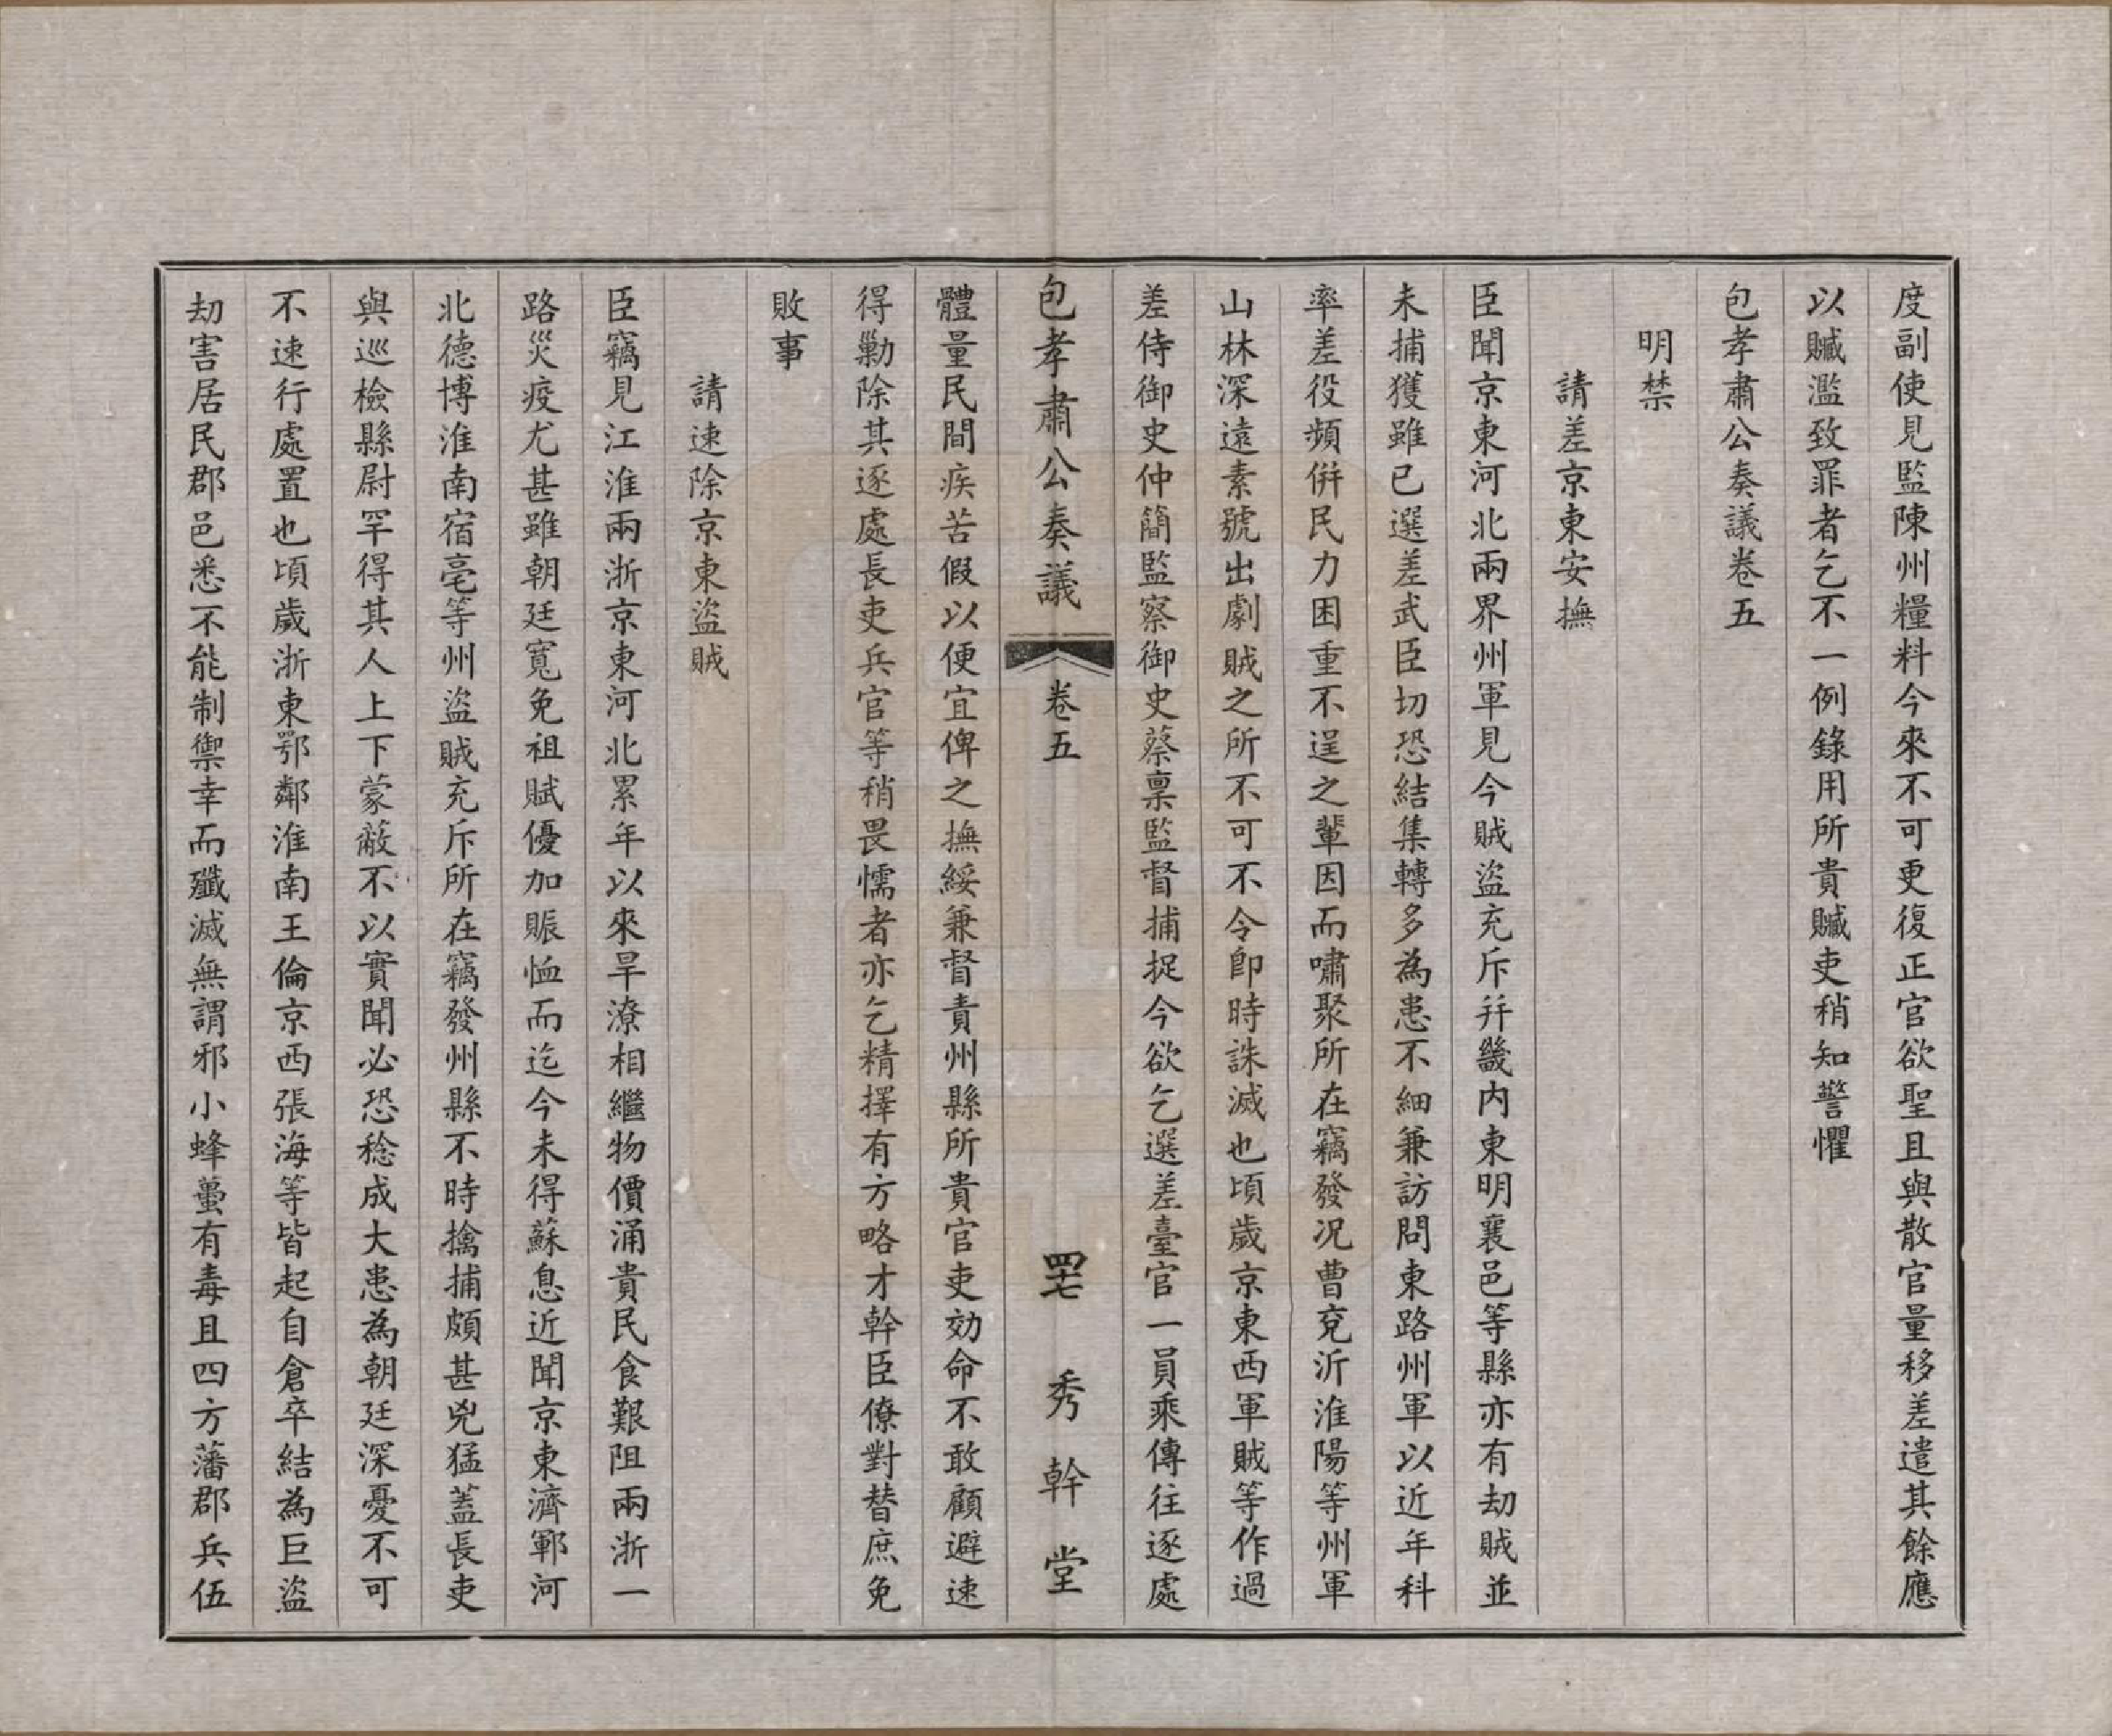 度副使見監陳州糧料今來不可更復正官欲聖且與散官量移差遣其餘應
以贓濫致罪者乞不一例錄用所貴贓吏稍知警懼
包孝肅公奏議卷五
明禁
請差京東安撫
臣聞京東河北兩界州軍見今賊盜充斥幷畿内東明襄邑等縣亦有刼賊並
未捕獲雖已選差武臣切恐結集轉多為患不細兼訪問東路州軍以近年科
率差役頻併民力困重不逞之輩因而嘯聚所在竊發况曹兗沂淮陽等州軍
山林深遠素號出劇賊之所不可不令卽時誅滅也頃歲京東西軍賊等作過
差侍御史仲簡監察御史蔡稟監督捕捉今欲乞選差臺官一員乘傳往逐處
包孝肅公奏議 卷五 四七 秀幹堂
體量民間疾苦假以便宜俾之撫綏兼督責州縣所貴官吏効命不敢顧避速
得勦除其逐處長吏兵官等稍畏懦者亦乞精擇有方略才幹臣僚對替庶免
敗事
請速除京東盜賊
臣竊見江淮兩浙京東河北累年以來旱潦相繼物價涌貴民食艱阻兩浙一
路災疫尤甚雖朝廷寬免租賦優加賑恤而迄今未得蘇息近聞京東濟鄆河
北德博淮南宿亳等州盜賊充斥所在竊發州縣不時擒捕頗甚兇猛蓋長吏
與巡檢縣尉罕得其人上下蒙蔽不以實聞必恐稔成大患為朝廷深憂不可
不速行處置也頃歲浙東鄂鄰淮南王倫京西張海等皆起自倉卒結為巨盜
刼害居民郡邑悉不能制禦幸而殲滅無謂邪小蜂蠆有毒且四方藩郡兵伍